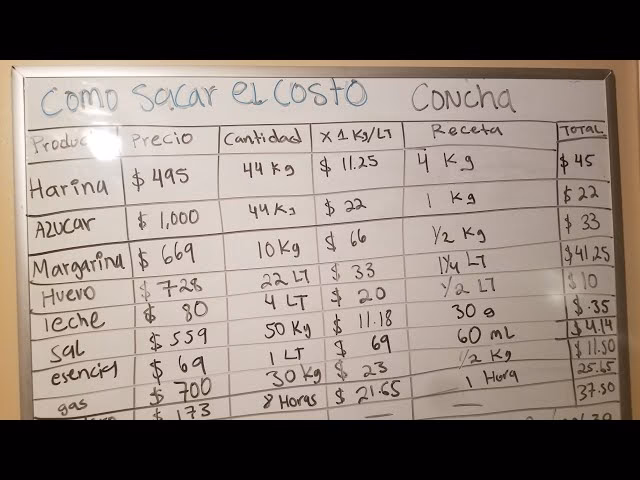 COMO SACAR EL COSTO CONCHA
Produc Precio Cantidad X 1 Kg/LT Receta TOTAL
Harina $ 495 44 Kg $ 11.25 4 Kg $ 45
AZUCAR $ 1,000 44 Kg $ 22 1 Kg $ 22
Margarina $ 669 10 Kg $ 66 1/2 Kg $ 33
Huevo $ 728 22 LT $ 33 1 1/4 LT $ 41.25
leche $ 80 4 LT $ 20 1/2 LT $ 10
SAL $ 559 50 Kg $ 11.18 30 g $ .35
esencias $ 69 1 LT $ 69 60 mL $ 4.14
gas $ 700 30 Kg $ 23 1/2 Kg $ 11.50
$ 173 8 Horas $ 21.65 1 Hora 25.65
37.50